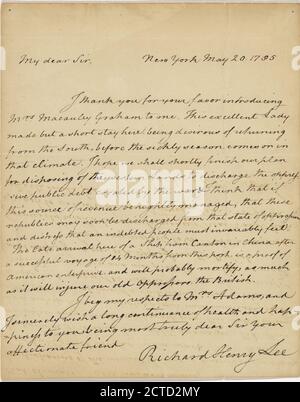 My dear Sir,
New York May 20. 1785
I thank you for your favor introducing
Mrs Macauley Graham to me. This excellent Lady
made but a short stay here: being desirous of returning
from the South, before the sickly season comes on in
that climate. I hope we shall shortly finish our plan
for disposing of the western to discharge the oppres
sive public debt by the war & think that if
this source of revenue be rightly managed, that these
republics may soon be discharged from that state of oppression
and distress that an indebted people must invariably feel.
The late arrival here of a Ship from Canton in China after
a successful voyage of 14 Months from this port, is a proof of
American enterprize, and will probably mortify, as much
as it will injure our old Oppressors the British.
I beg my respects to Mrs Adams, and
sincerely wish a long continuance of health and hap
piness to you being most truly dear Sir Your
affectionate friend
Richard Henry Lee
alamy
Image ID: 2CTD2MY
www.alamy.com